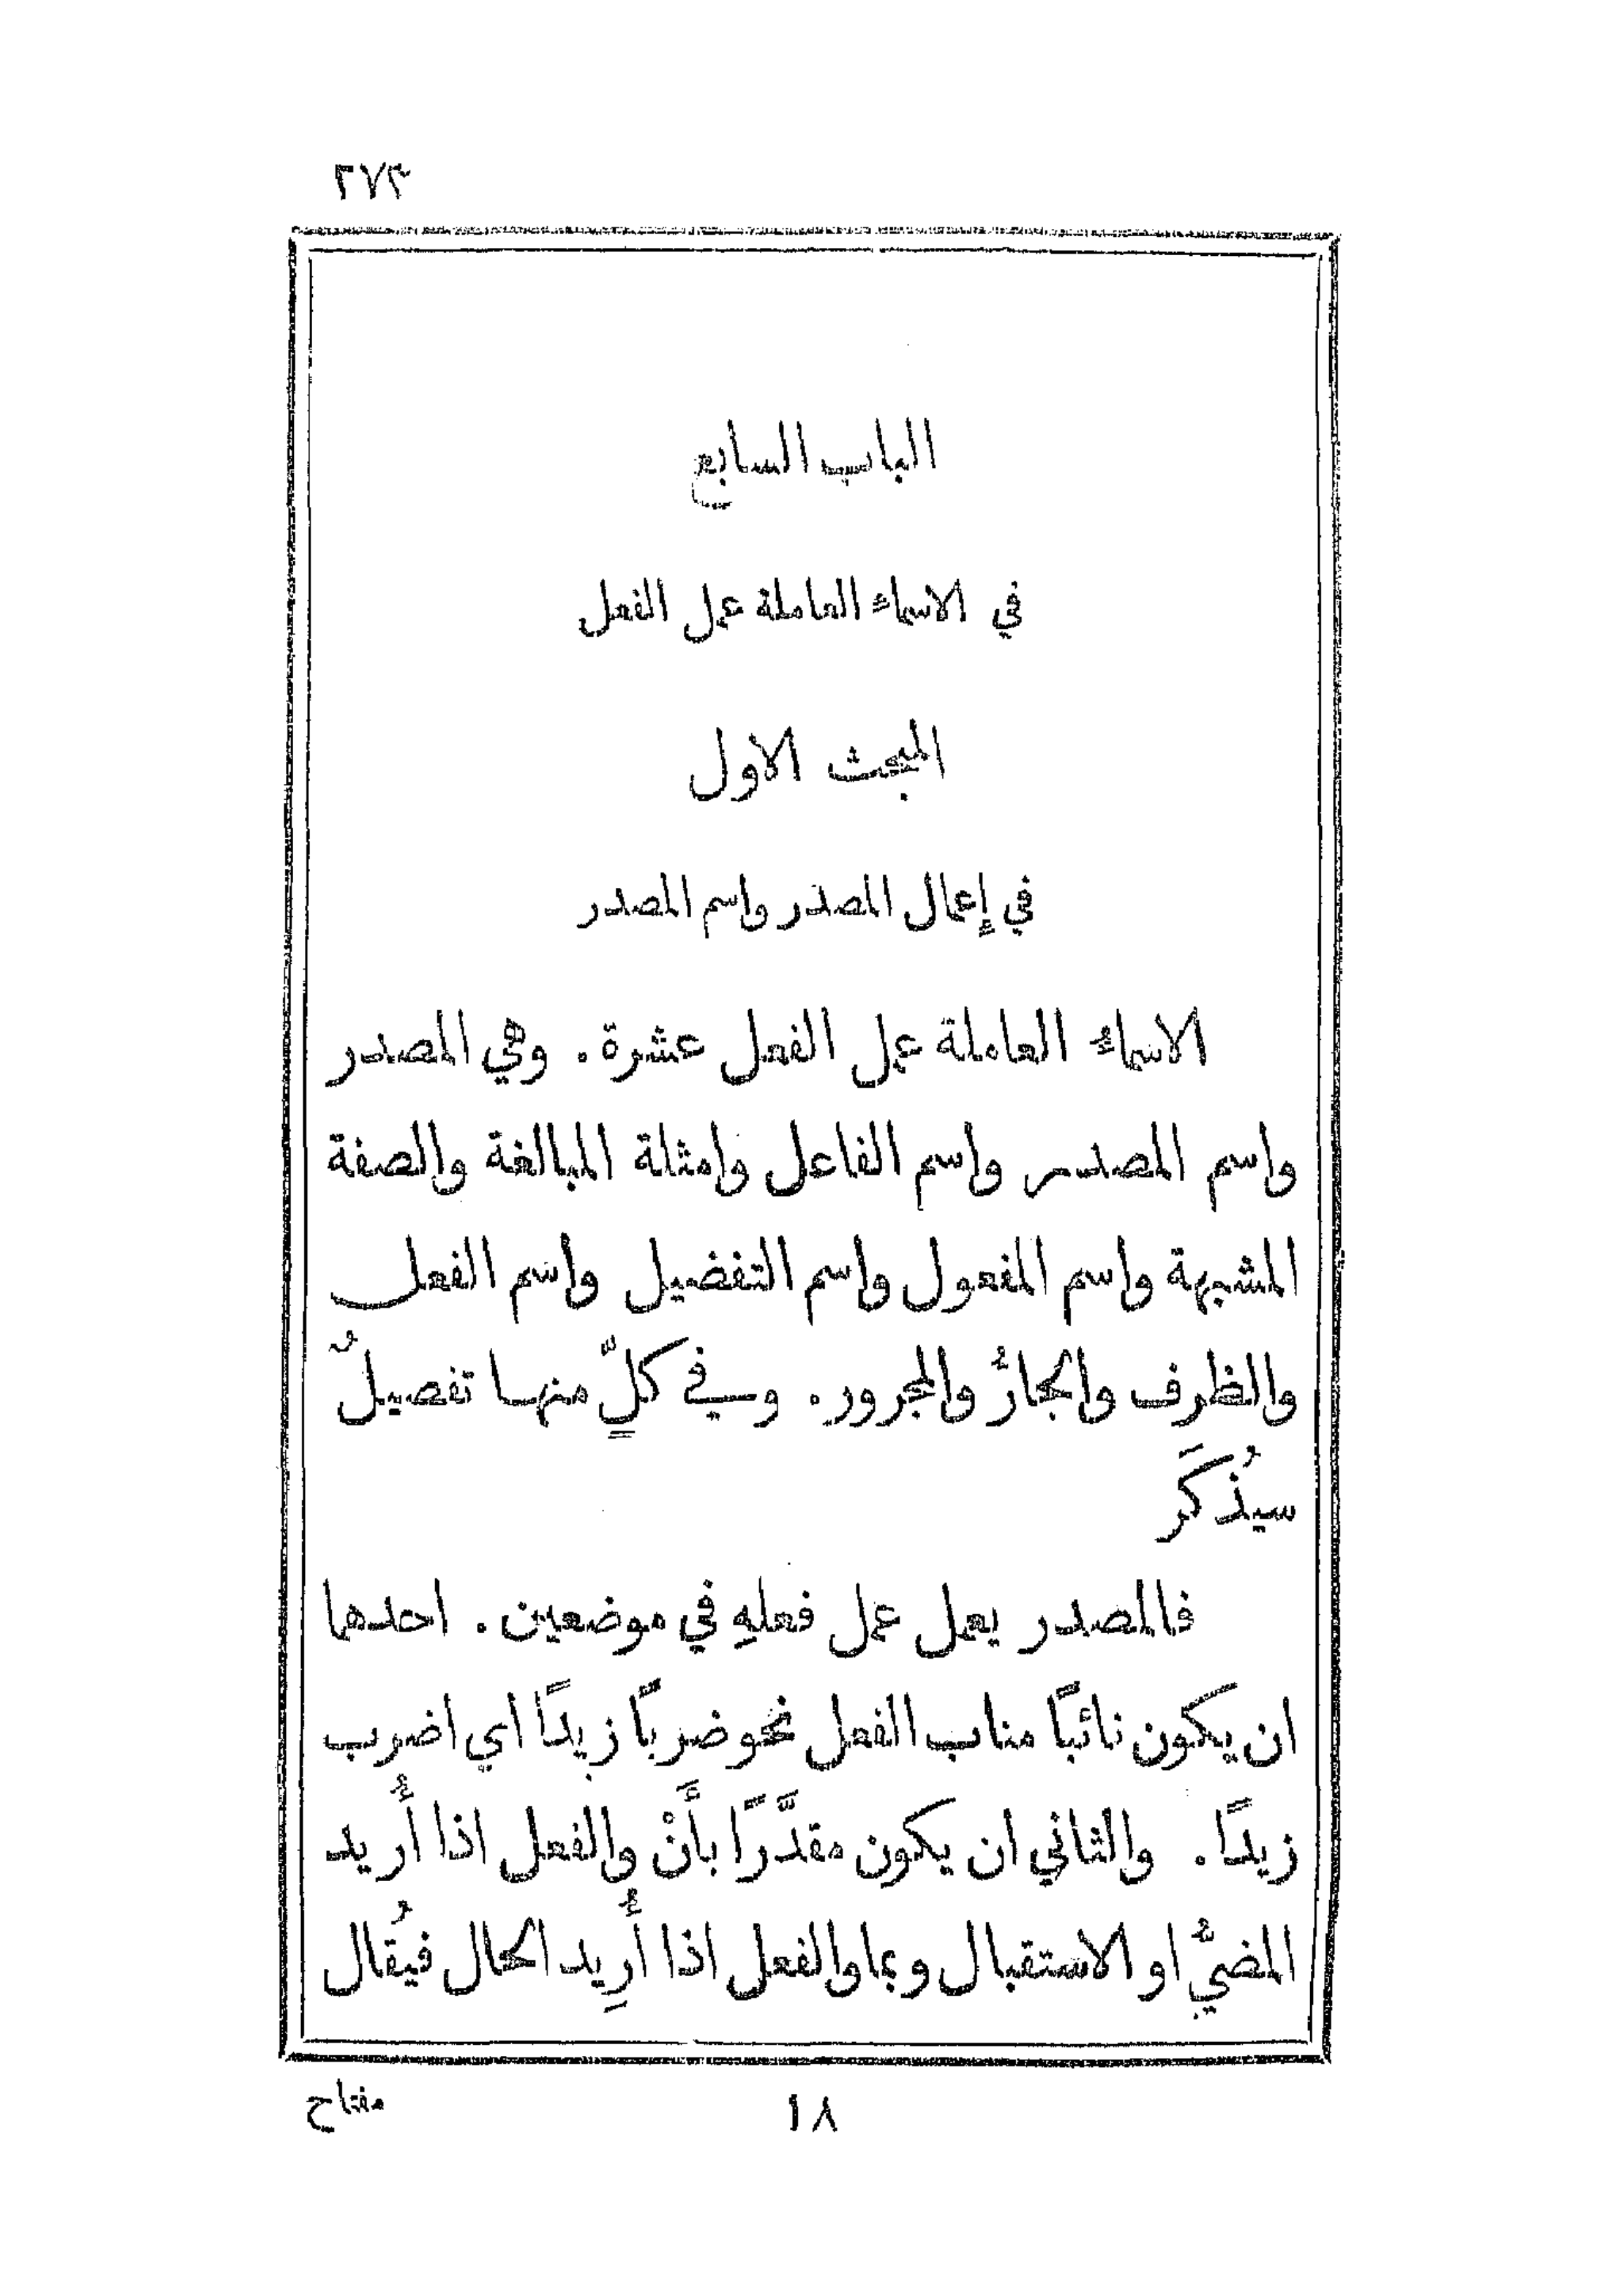 ٢٧٣
الباب السابع
في الاسماء العاملة عمل الفعل
المبحث الاول
في إعمال المصدر واسم المصدر
الاسماءُ العاملة عمل الفعل عشرة. وهي المصدر
واسم المصدر واسم الفاعل وامثلة المبالغة والصفة
المشبهة واسم المفعول واسم التفضيل واسم الفعل
والظرف والجارُّ والمجرور. وفي كلٍّ منها تفصيلٌ
سيُذكَر
فالمصدر يعمل عمل فعلهِ في موضعين. احدهما
ان يكون نائبًا مناب الفعل نحو ضربًا زيدًا اي اضرب
زيدًا. والثاني ان يكون مقدَّرًا بأَنْ والفعل اذا أُريد
المضيُّ او الاستقبال وبما والفعل اذا أُرِيد الحال فيُقال
مفتاح
١٨